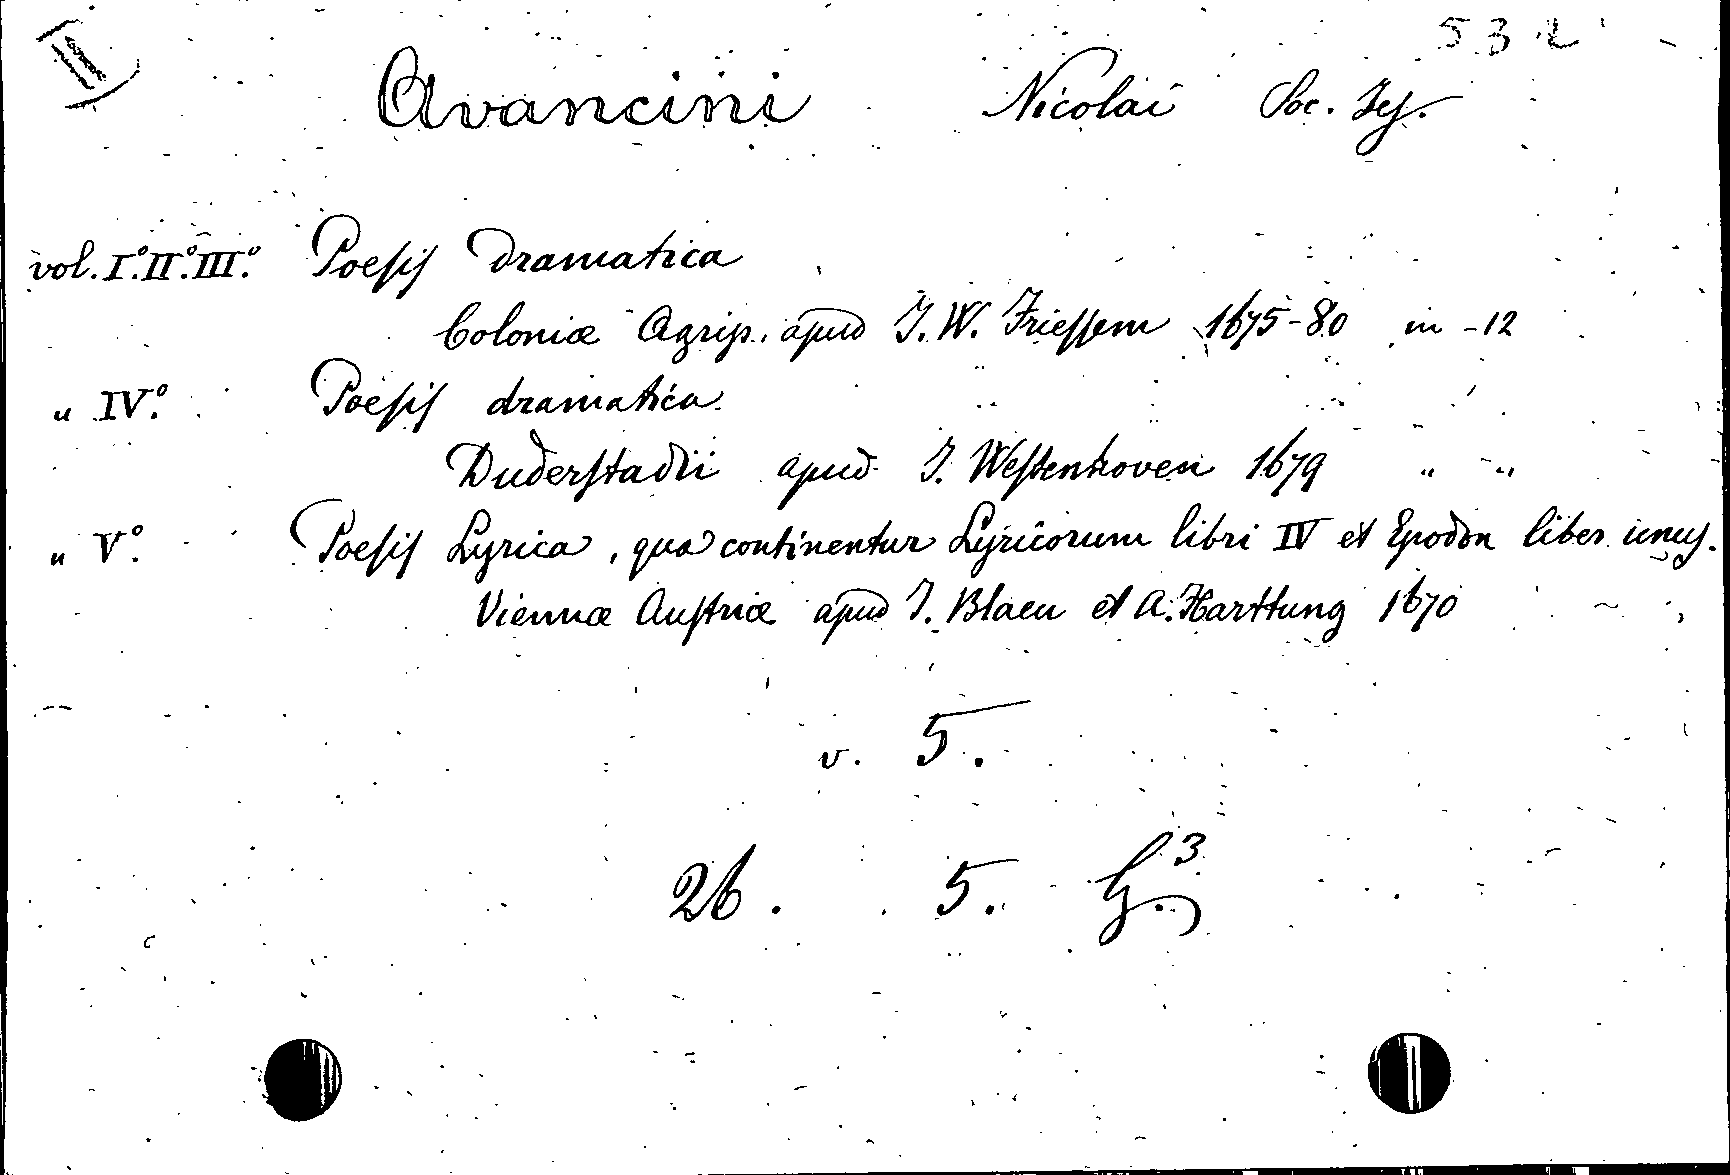 II 532
Avancini Nicolai Soc. Jes.
vol. I.º II.º III.º Poesis Dramatica
Coloniæ Agrip. apud J. W. Friessem 1675-80 in -12
" IV.º Poesis dramatica
Duderstadii apud J. Westenhoven 1679 " "
" V.º Poesis Lyrica, qua continentur Lyricorum libri IV et Epodon liber unus.
Viennæ Austriæ apud J. Blaeu et A. Harttung 1670
v. 5.
26. 5. G.³